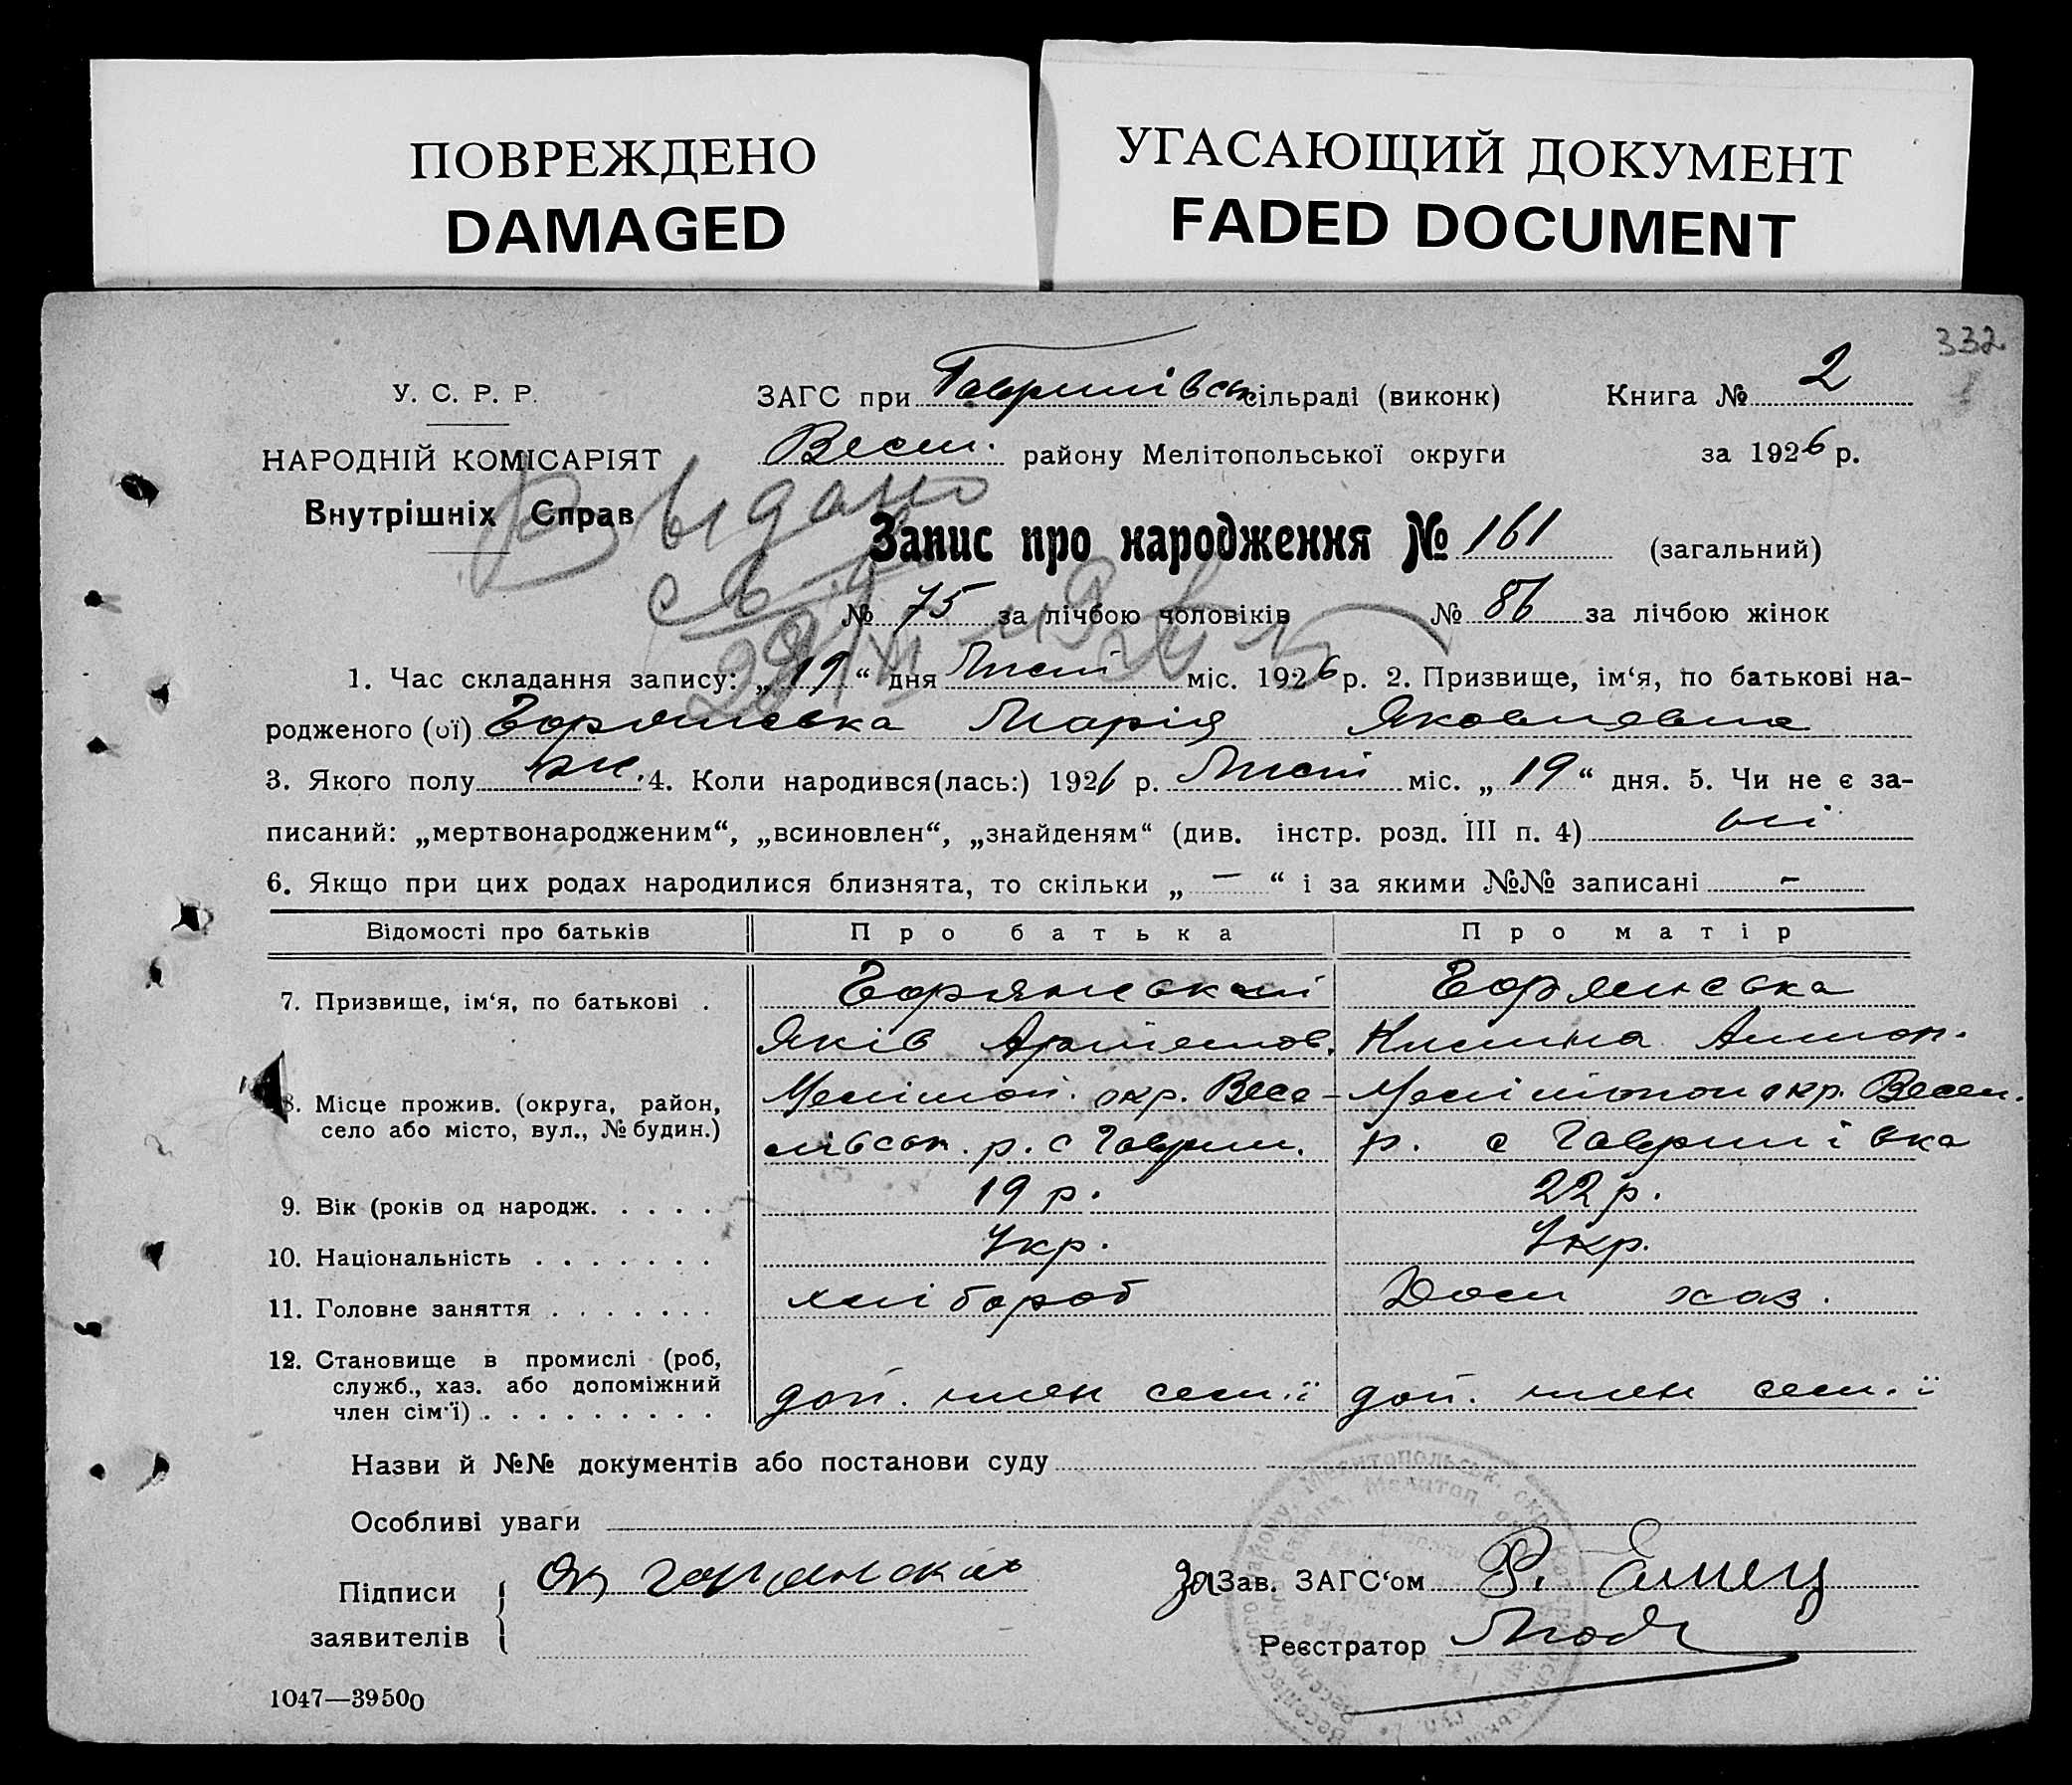 ПОВРЕЖДЕНО
DAMAGED
УГАСАЮЩИЙ ДОКУМЕНТ
FADED DOCUMENT
332
У. С. Р. Р.
НАРОДНІЙ КОМІСАРІЯТ
Внутрішніх Справ
ЗАГС при Гаврилівськ сільраді (виконк)
Книга № 2
Весел. району Мелітопольської округи
за 1926 р.
Выдано
Запис про народження № 161 (загальний)
№ 75 за лічбою чоловіків № 86 за лічбою жінок
1. Час складання запису: „19“ дня Лист міс. 1926 р. 2. Призвище, ім‘я, по батькові на-
родженого (ої) Горянська Марія Яковлевна
3. Якого полу ж. 4. Коли народився(лась:) 1926 р. Лист міс. „19“ дня. 5. Чи не є за-
писаний: „мертвонародженим“, „всиновлен“, „знайденям“ (див. інстр. розд. III п. 4) ні
6. Якщо при цих родах народилися близнята, то скільки „ — “ і за якими №№ записані -
Відомості про батьків Про батька Про матір
7. Призвище, ім‘я, по батькові . Горянський Горянська
Яків Артемов.
8. Місце прожив. (округа, район, Меліт оп. окр. Весе- Мелітопол окр. Весел.
село або місто, вул., № будин.) лівськ. р. с Гаврил. р. с Гаврилівка
9. Вік (років од народж. . . . . 19 р. 22 р.
10. Національність . . . . . . . Укр. Укр.
11. Головне заняття . . . . . . . хлібороб Дом хаз.
12. Становище в промислі (роб,
служб., хаз. або допоміжний
член сім‘ї) . . . . . . . . . доп. член сем.ї доп. член сем.ї
Назви й №№ документів або постанови суду
Особливі уваги
Підписи
заявителів
За Зав. ЗАГС‘ом Р. Емец
Реєстратор
1047—39500